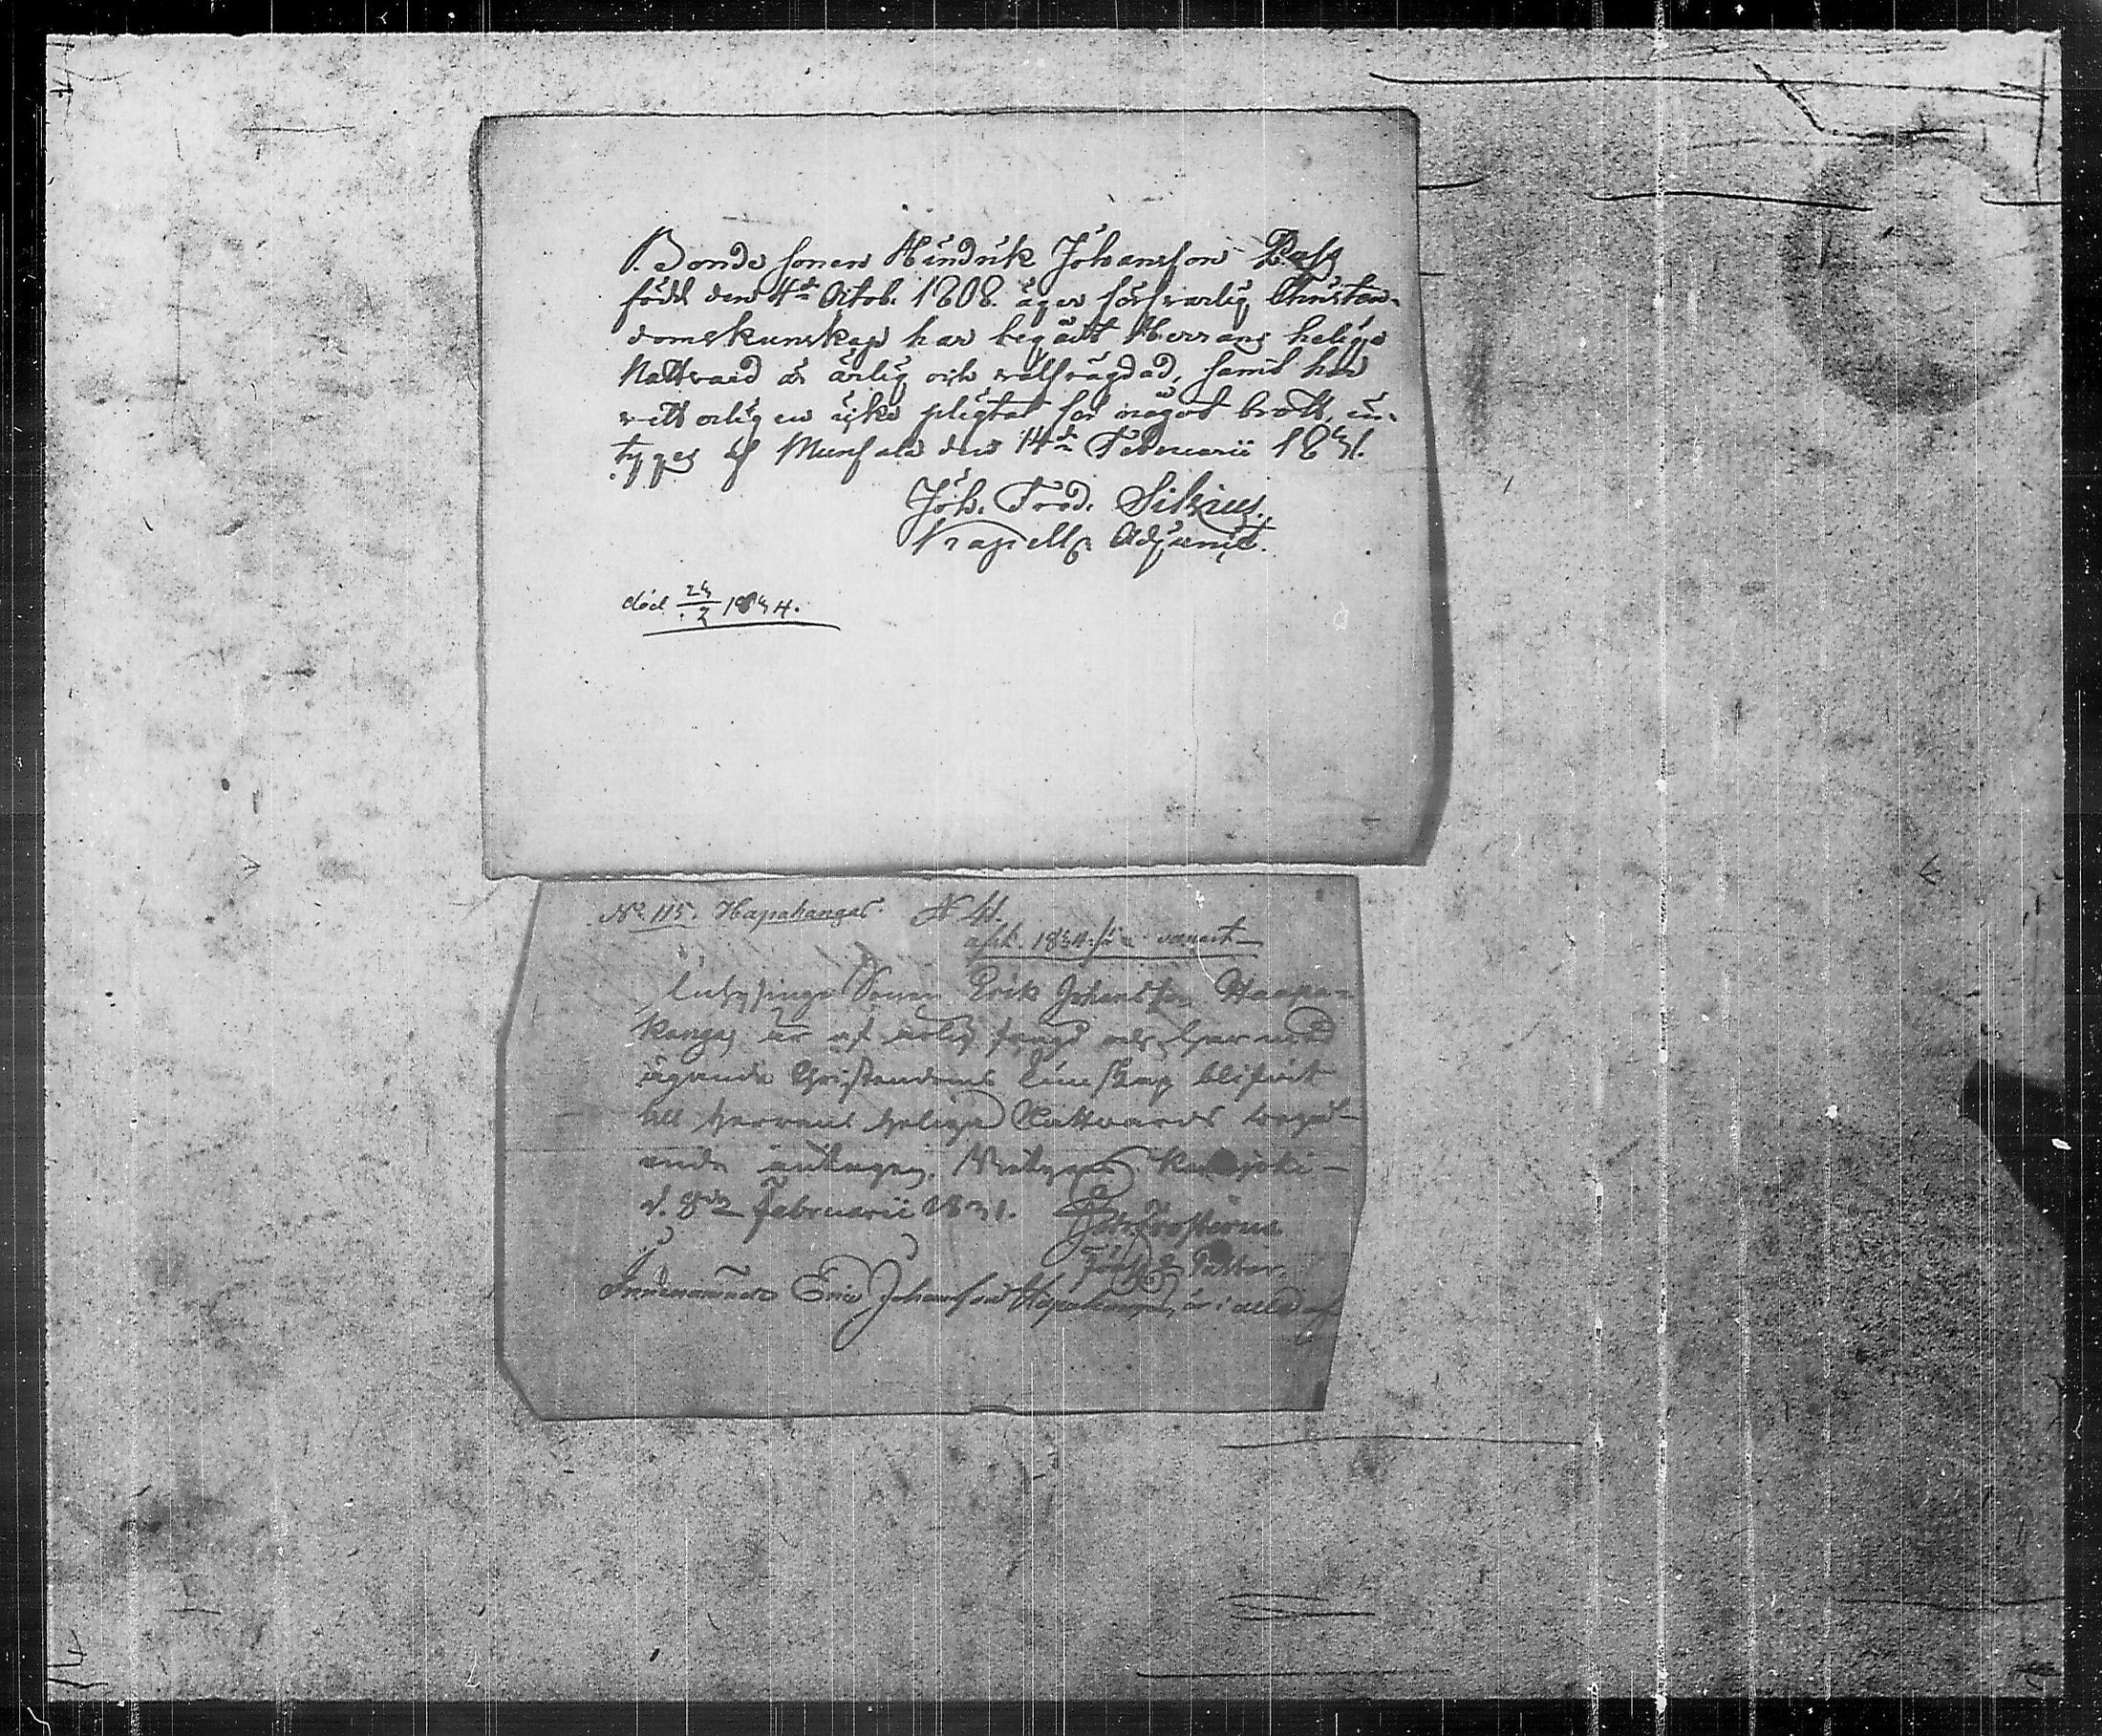 Bonde sonen Hindrik Johansson Rass
född den 4de Octob. 1808. äger försvarlig Christen-
domskunskap har begådt Herrans heliga
Nattvard är ärlig och wälfrägdad, samt har
vetterligen icke pligtat för något brott, in-
tyges af Munsala den 14de Februarii 1831.
Joh. Fred.
Kapells Adjunct.
död 23/2 1834.
No 115. Hapakangas. N 41.
1834
Sonen Erik Johansson Haapa-
kangas är af ärlig frägd och har med
ägande Christendoms kunskap blifvit
till Herrans heliga Nattvards begå-
ende antagen. Kalajoki
d. 8de Februarii 1831.
Innenämnde Eric Johansson Hapakangas, är i